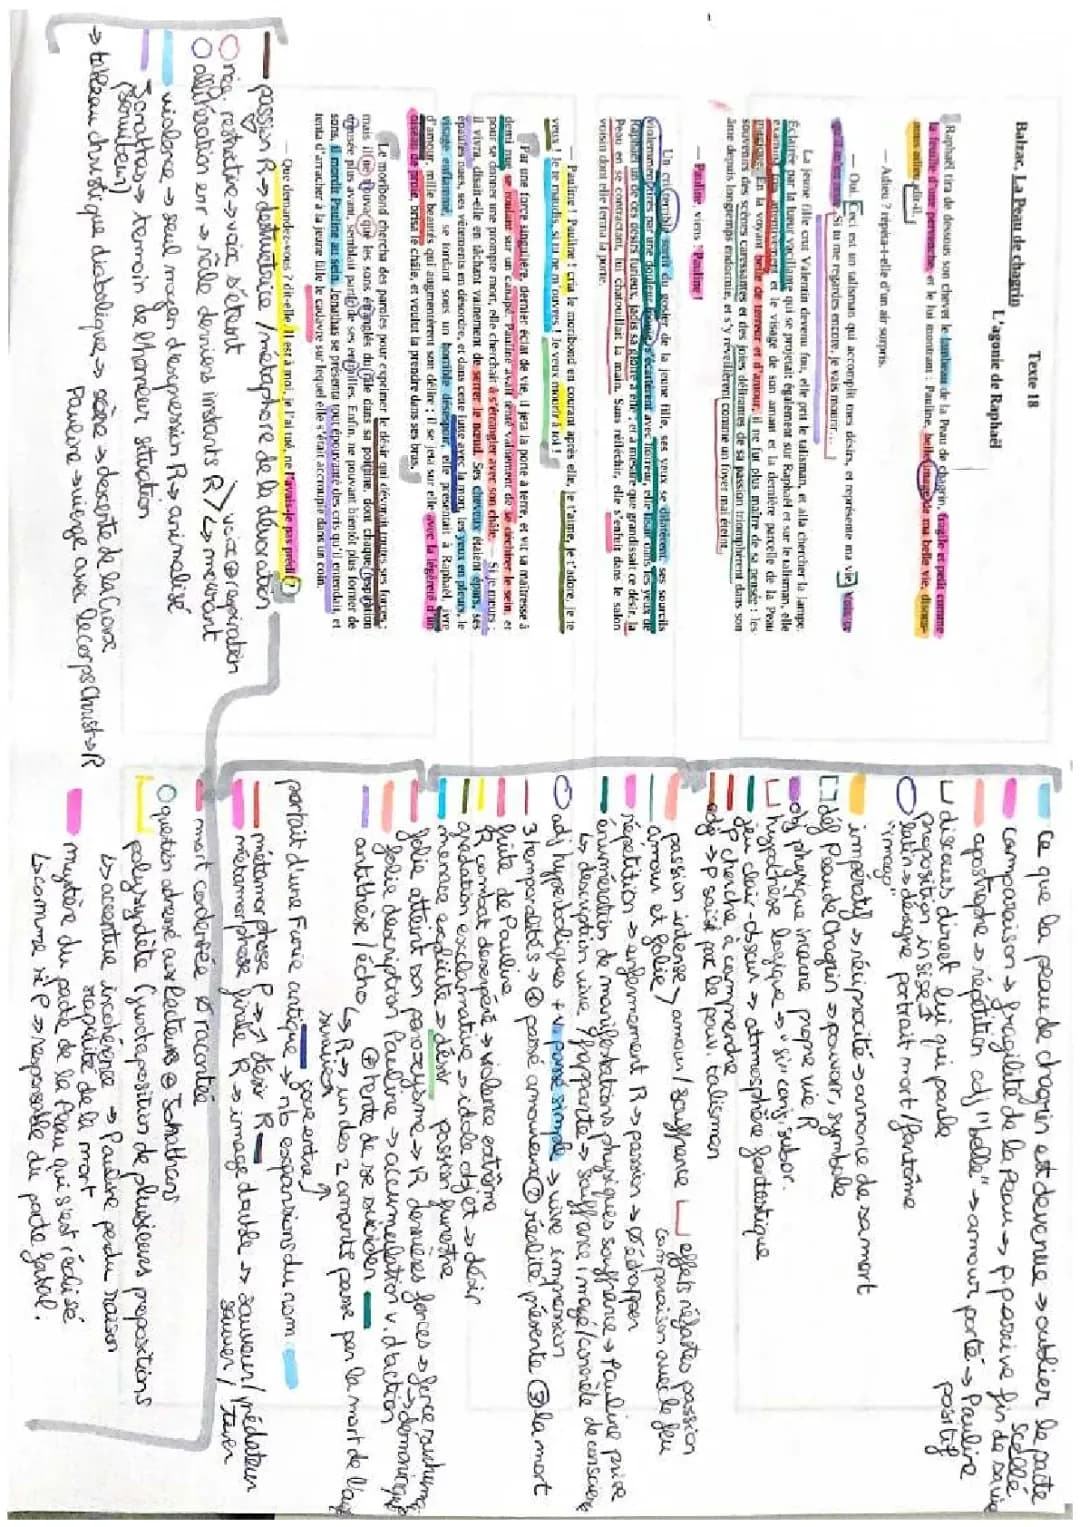 Texte 18
Balzac, La Peau de chagrin
L'agonie de Raphaël
Raphaël tira de dessous son chevet le lambeau de la Peau de chagrin, fragile et petit comme
la feuille d'une pervenche, et le lui montrant : Pauline, belle image de ma belle vie, disons-
nous adieu, dit-il.
— Adieu ? répéta-t-elle d'un air surpris.
— Oui. Ceci est un talisman qui accomplit mes désirs, et représente ma vie. Vois ce
qu'il m'en reste. Si tu me regardes encore, je vais mourir...
La jeune fille crut Valentin devenu fou, elle prit le talisman, et alla chercher la lampe.
Éclairée par la lueur vacillante qui se projetait également sur Raphaël et sur le talisman, elle
examina très attentivement et le visage de son amant et la dernière parcelle de la Peau
magique. En la voyant belle de terreur et d'amour, il ne fut plus maître de sa pensée : les
souvenirs des scènes caressantes et des joies délirantes de sa passion triomphèrent dans son
âme depuis longtemps endormie, et s'y réveillèrent comme un foyer mal éteint.
— Pauline, viens ! Pauline !
Un cri terrible sortit du gosier de la jeune fille, ses yeux se dilatèrent, ses sourcils
violemment tirés par une douleur inouïe, s'écartèrent avec horreur, elle lisait dans les yeux de
Raphaël un de ces désirs furieux, jadis sa gloire à elle ; et à mesure que grandissait ce désir, la
Peau en se contractant, lui chatouillait la main. Sans réfléchir, elle s'enfuit dans le salon
voisin dont elle ferma la porte.
— Pauline ! Pauline ! cria le moribond en courant après elle, je t'aime, je t'adore, je te
veux ! Je te maudis, si tu ne m'ouvres ! Je veux mourir à toi !
Par une force singulière, dernier éclat de vie, il jeta la porte à terre, et vit sa maîtresse à
demi nue se roulant sur un canapé. Pauline avait tenté vainement de se déchirer le sein, et
pour se donner une prompte mort, elle cherchait à s'étrangler avec son châle. — Si je meurs,
il vivra, disait-elle en tâchant vainement de serrer le nœud. Ses cheveux étaient épars, ses
épaules nues, ses vêtements en désordre, et dans cette lutte avec la mort, les yeux en pleurs, le
visage enflammé, se tordant sous un horrible désespoir, elle présentait à Raphaël, ivre
d'amour, mille beautés qui augmentèrent son délire ; il se jeta sur elle avec la légèreté d'un
oiseau de proie, brisa le châle, et voulut la prendre dans ses bras.
Le moribond chercha des paroles pour exprimer le désir qui dévorait toutes ses forces ;
mais il ne trouva que les sons étranglés du râle dans sa poitrine, dont chaque respiration
creusée plus avant, semblait partir de ses entrailles. Enfin, ne pouvant bientôt plus former de
sons, il mordit Pauline au sein. Jonathas se présenta tout épouvanté des cris qu'il entendait, et
tenta d'arracher à la jeune fille le cadavre sur lequel elle s'était accroupie dans un coin.
— Que demandez-vous ? dit-elle. Il est à moi, je l'ai tué, ne l'avais-je pas prédit ?
passion R → destructrice / métaphore de la dévoration
nég. restrictive → voix s'éteint
voix ⊕ respiration
allitération en r → râle derniers instants R
↳ mourant
violence → seul moyen d'expression R → animalisé
Jonathas → témoin de l'horreur situation
(serviteur)
→ tableau christique diabolique → scène → descente de la Croix
Pauline → vierge avec le corps Christ → R
Ce que la peau de chagrin est devenue → oublier le pacte
scellé
comparaison → fragilité de la Peau → P passive fin de sa vie
apostrophe → répétition adj "belle" → amour porté → Pauline
positif
discours direct lui qui parle
proposition incise
latin → désigne portrait mort / fantôme
"imago"
impératif → réciprocité → annonce de sa mort
déf Peau de Chagrin → pouvoir, symbole
obj physique incarne propre vie R
hypothèse logique → "si" conj. subor.
jeu clair-obscur → atmosphère fantastique
P cherche à comprendre
adj → P saisie par le pouv. talisman
passion intense, amour / souffrance
effets néfastes passion
amour et folie
comparaison avec le feu
répétition → enfermement R → passion → Ø échapper
énumération de manifestations physiques souffrance → Pauline prise
↳ description vive / frappante → souffrance, imagé / concrète de conscience
adj hyperboliques + v passé simple → vive impression
3 temporalités → ① passé amoureux ② réalité présente ③ la mort
fuite de Pauline
R combat désespéré → violence extrême
gradation exclamative → idole objet → désir
menace explicite → désir passion funestre
folie atteint son paroxysme → R dernières forces → force
folie description Pauline → accumulation v. d'action → démoniaque
antithèse / écho ↳ R → un des 2 amants passe par la mort de l'autre
⊕ tente de se suicider
survivre
portait d'une Furie antique → nb expansions du nom
métamorphose P → ↗ désir R
métamorphose finale R → image double → sauveur / prédateur
sauver / tuer
mort accélérée Ø racontée
question adressé aux lecteurs ⊕ Jonathans
polysyndète (juxtaposition de plusieurs propositions
↳ accentue incohérence → Pauline perdu raison
rapidité de la mort
mystère du pacte de la Peau qui s'est réalisé
↳ comme si P → responsable du pacte fatal.